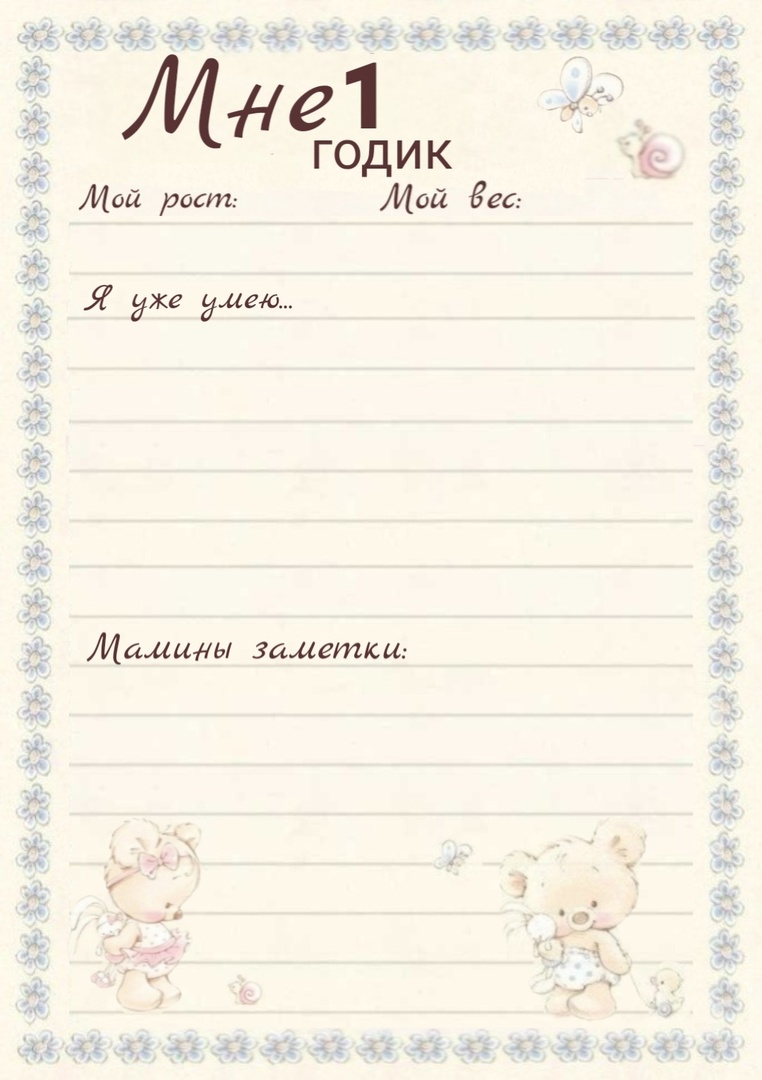 Мне 1
годик
Мой рост: Мой вес:
Я уже умею...
Мамины заметки: